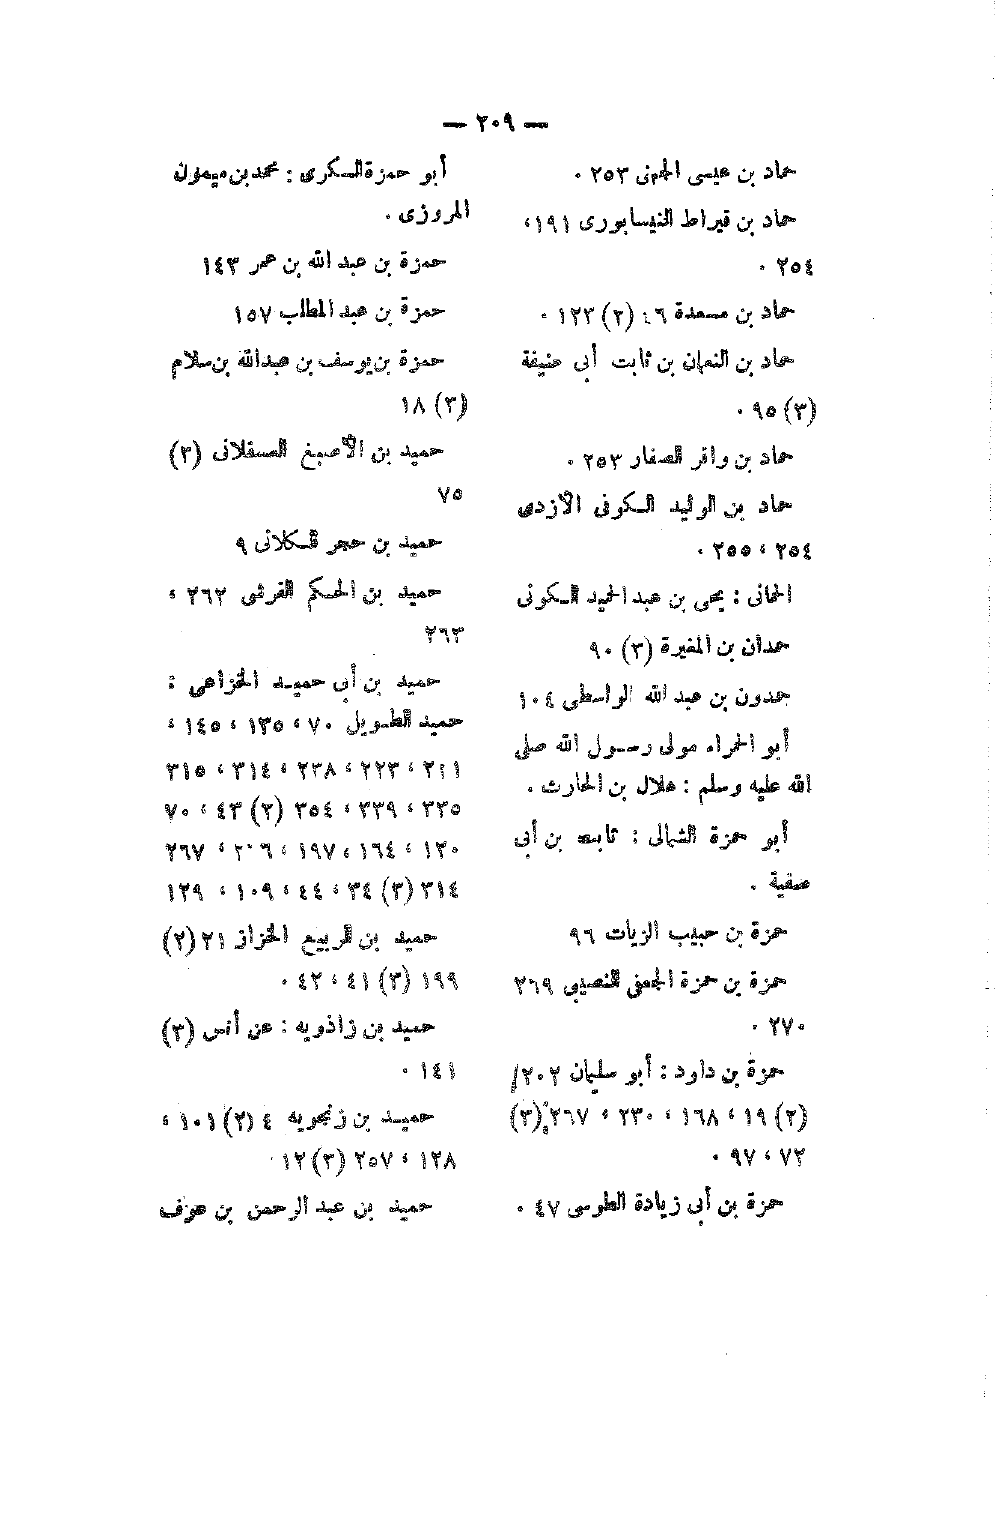 — ٢٠٩ —
حماد بن عيسى الجهنى ٢٥٣ .
حماد بن قيراط النيسابورى ١٩١،
٢٥٤ .
حماد بن مسعدة ٤٦ (٢) ١٢٣ .
حماد بن النعمان بن ثابت أبى حنيفة
(٣) ٩٥ .
حماد بن واقر الصفار ٢٥٣ .
حماد بن الوليد الكوفى الأزدى
٢٥٤ ، ٢٥٥ .
الحمانى : يحيى بن عبد الحميد الكوفى
حمدان بن المغيرة (٣) ٩٠
حمدون بن عبد الله الواسطى ١٠٤
أبو الحمراء مولى رسول الله صلى
الله عليه وسلم : هلال بن الحارث .
أبو حمزة الثمالى : ثابت بن أبى
صفية .
حمزة بن حبيب الزيات ٩٦
حمزة بن حمزة الجعفى النصيبى ٢٦٩
٢٧٠ .
حمزة بن داود : أبو سليمان ٢٠٢/
(٢) ١٩ ، ١٦٨ ، ٢٣٠ ، ٢٦٧ (٣)
٧٢ ، ٩٧ .
حمزة بن أبى زيادة الطوسى ٤٧ .
أبو حمزة السكرى : محمد بن ميمون
المروزى .
حمزة بن عبد الله بن عمر ١٤٣
حمزة بن عبد المطلب ١٥٧
حمزة بن يوسف بن عبد الله بن سلام
(٣) ١٨
حميد بن الأصبغ العسقلانى (٢)
٧٥
حميد بن حجر الكلانى ٩
حميد بن الحكم القرشى ٢٦٢ ،
٢٦٣
حميد بن أبى حميد الخزاعى :
حميد الطويل ٧٠ ، ١٣٥ ، ١٤٥ ،
٢٢١ ، ٢٢٣ ، ٢٣٨ ، ٣١٤ ، ٣١٥
٣٣٥ ، ٣٣٩ ، ٣٥٤ (٢) ٤٣ ، ٧٠
١٢٠ ، ١٦٤ ، ١٩٧ ، ٢٠٦ ، ٢٦٧
٣١٤ (٣) ٣٤ ، ٤٤ ، ١٠٩ ، ١٢٩
حميد بن الربيع الخزاز ٢١ (٢)
١٩٩ (٣) ٤١ ، ٤٢ .
حميد بن زاذويه : عن أنس (٣)
١٤١ .
حميد بن زنجويه ٤ (٢) ١٠١ ،
١٢٨ ، ٢٥٧ (٣) ١٢
حميد بن عبد الرحمن بن عوف